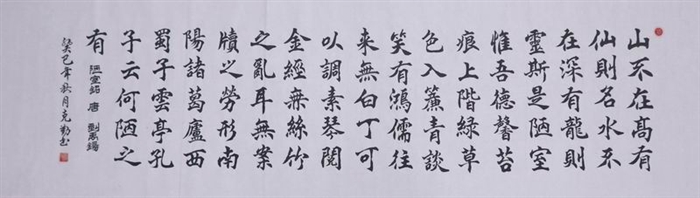 山不在高有
仙則名水不
在深有龍則
靈斯是陋室
惟吾德馨苔
痕上階綠草
色入簾青談
笑有鴻儒往
来無白丁可
以調素琴閱
金經無絲竹
之亂耳無案
牘之勞形南
陽諸葛廬西
蜀子雲亭孔
子云何陋之
有
陋室銘 唐 劉禹錫
癸巳年秋月克勤书